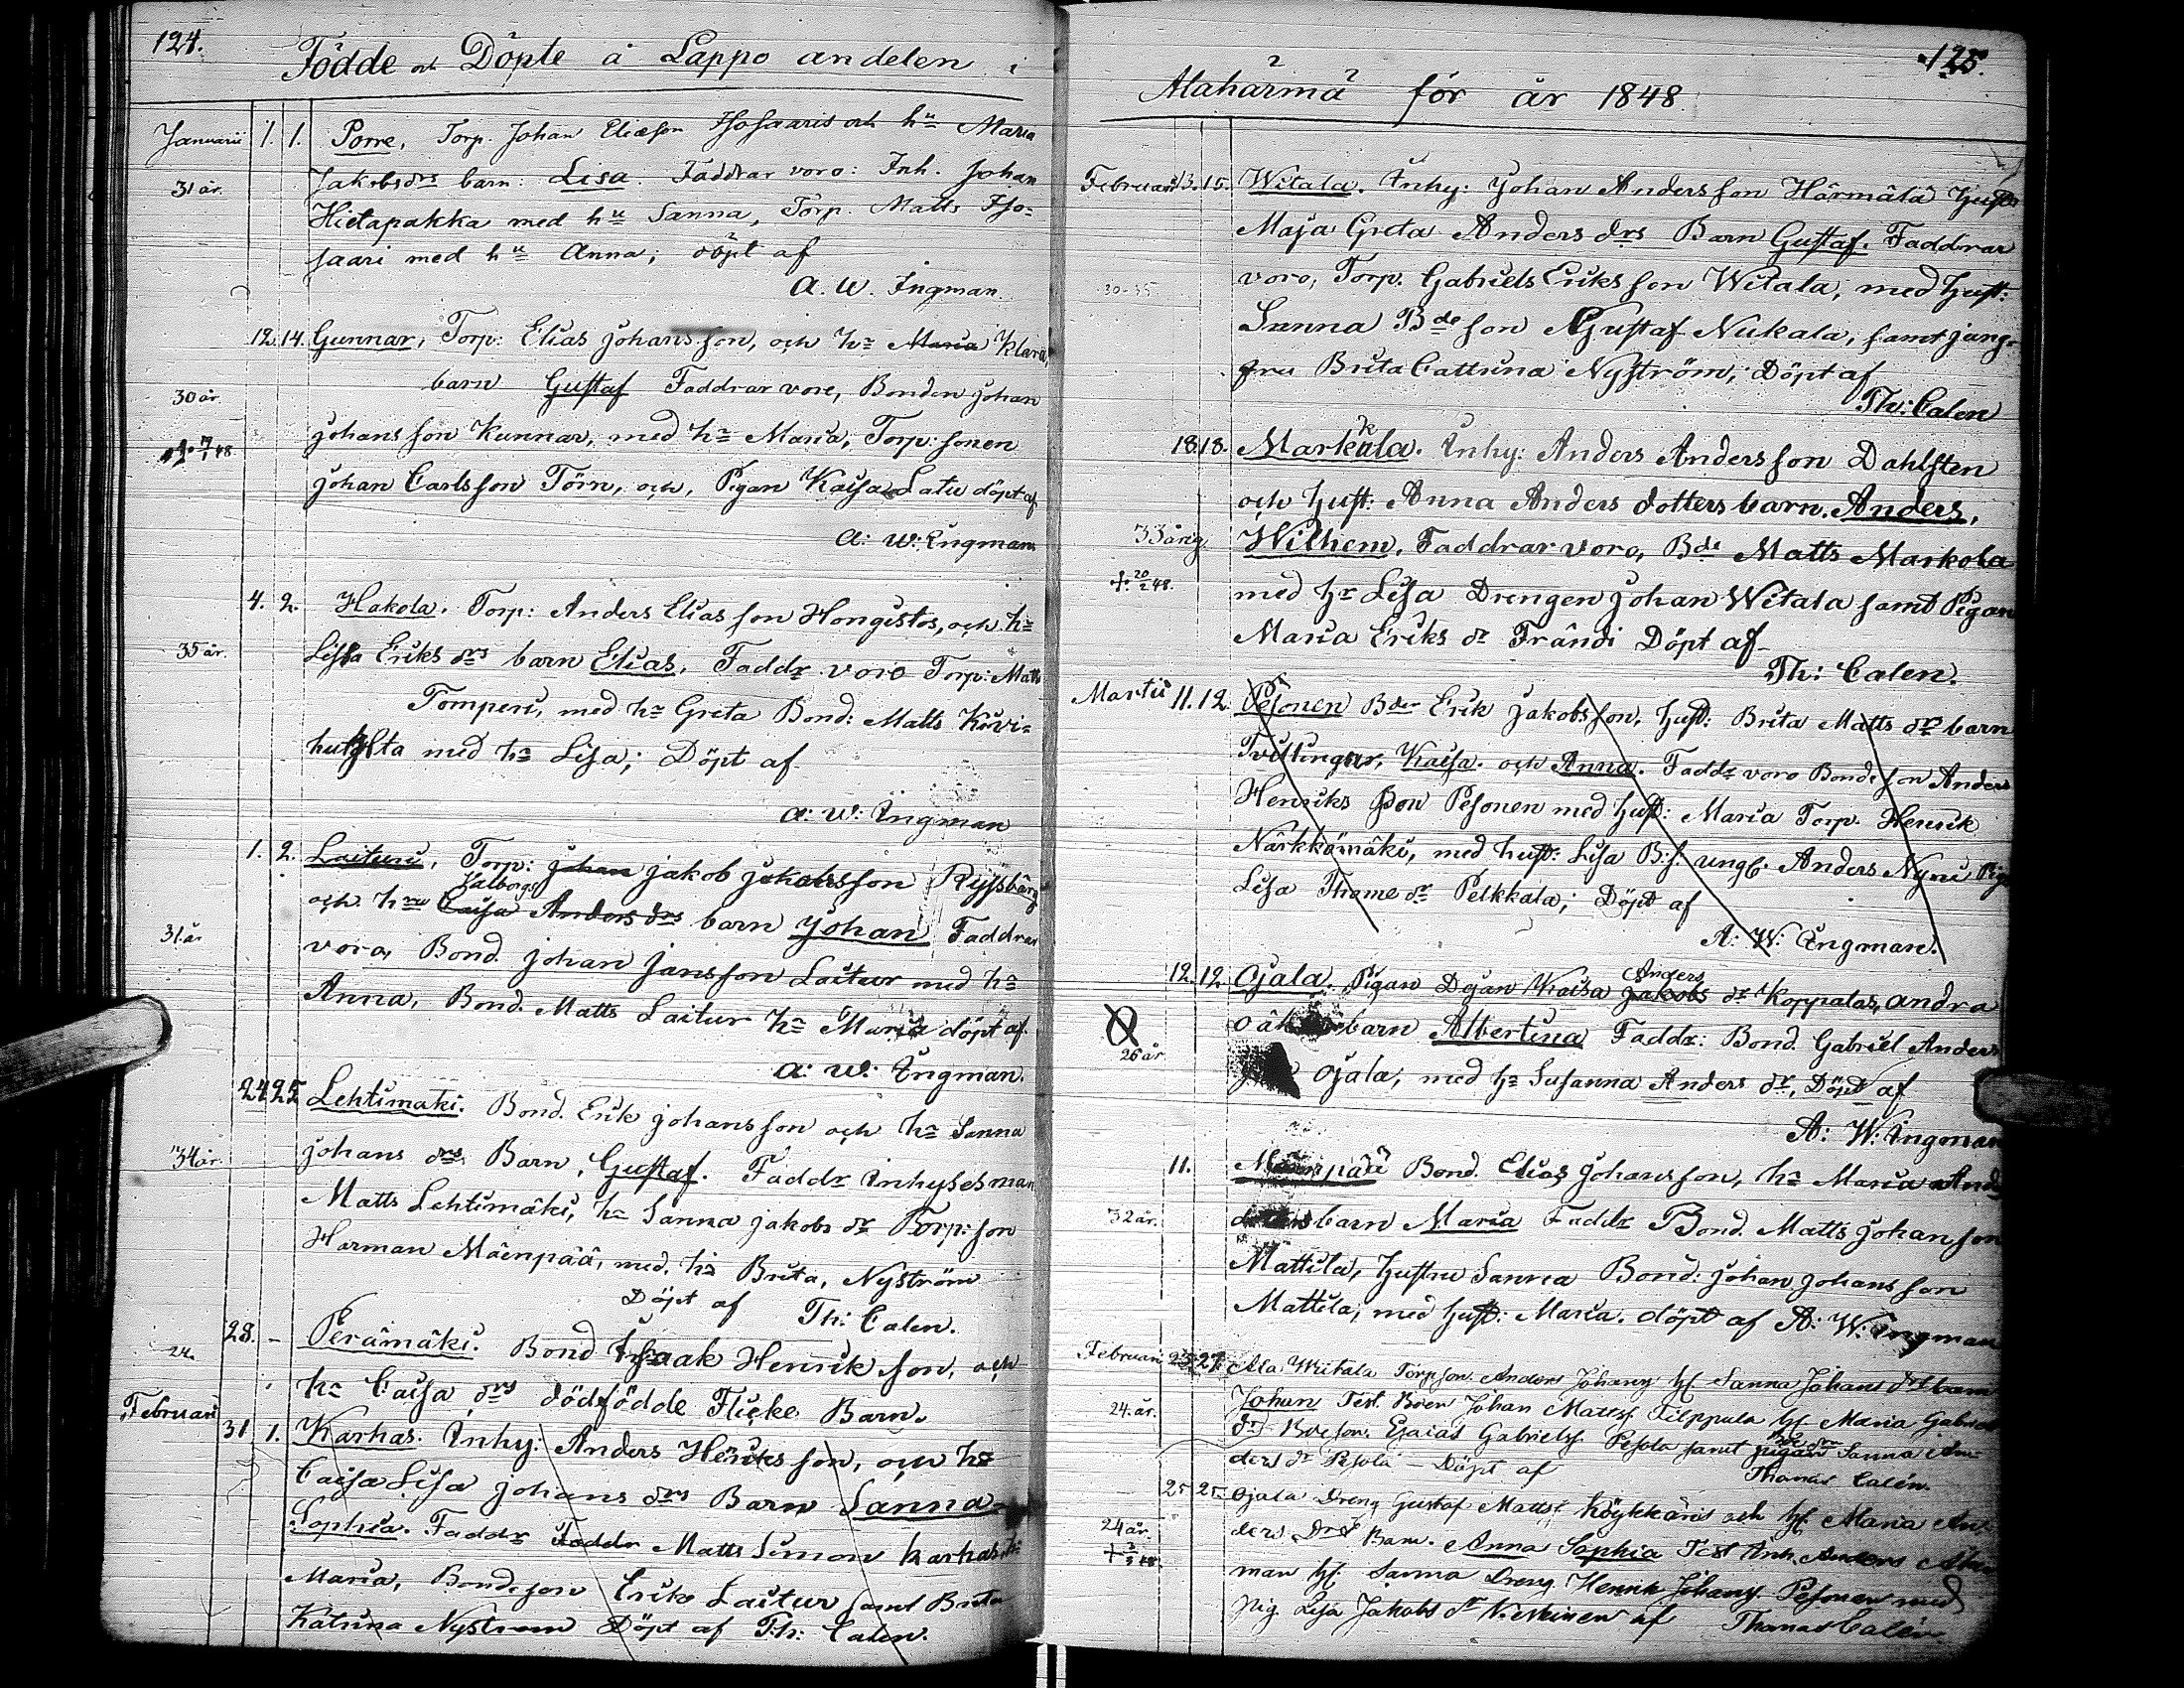 124.
Födde och Döpte å Lappo andelen i
Januarii 1. 1. Porre, Torp. Johan Eliæson Isosaaris och hu Maria
31 år. Jakobsdrs barn: Lisa. Faddrar voro: Inh. Johan
Hietapakka med hu Sanna, Torp. Matts Iso-
saari med hu Anna; döpt af
A. W. Ingman.
12. 14. Gunnar, Torp: Elias Johansson, och hu Maria Klara
30 år. barn Gustaf Faddrar vore, Bonden Johan
Johansson Kunnar, med hu Maria, Torp: sonen
Johan Carlsson Törn, och, Pigan Kaisa Latu döpt af
A: W: Ingman
4. 2. Hakola. Torp: Anders Eliasson Hongistos, och hu
35 år. Lisa Eriks drs barn Elias, Faddr voro Torp: Matts
Tomperi, med hu Greta Bond: Matts Kivi-
huhta med hu Lisa; Döpt af
A: W: Ingman
1. 2. Laituri, Torp: Johan Jakob Jakobsson Ryssbärg
Valborgs
31 år och hu Caisa Anders drs barn Johan Faddrar
voro, Bond. Johan Jansson Laitur med hu
Anna, Bond. Matts Laitur hu Maria döpt af
A: W: Ingman.
24 25 Lehtimäki. Bond. Erik Johansson och hu Sanna
34 år. Johans drs Barn, Gustaf. Faddr Inhysesman
Matts Lehtimäki, hu Sanna Jakobs dr Torp: son
Harman Mäenpää, med. hu Brita, Nyström
Döpt af Th: Calen.
28. - Perämäki. Bond Isaak Henrikson, och
24. hu Caisa drs dödfödde Flicke Barn.
Februari 31 1. Karhas. Inhy: Anders Henriksson, och hu
Caisa Lisa Johans drs Barn Sanna
Sophia. Faddr Faddr Matts Simon Karhas, hu
Maria, Bondeson Erik Laitur samt Brita
Katrina Nyström Döpt af Th: Calen.
125.
Alahärmä för år 1848
Februari 13. 15. Witala. Inhy: Johan Andersson Härmälä Hustr
Maja Greta Anders drs Barn Gustaf. Faddrar
30-35 voro, Torp. Gabriels Eriksson Witala, med Hust:
Sanna Bde son Gustaf Nukala, samt jung-
fru Brita Cattrina Nyström, Döpt af
Th: Calen
18. 18. Markkula. Inhy: Anders Andersson Dahlsten
och Hust: Anna Anders dotters barn. Anders,
33 årig. Wilhem, Faddrar voro, Bde Matts Markola
+ 20/2 48. med hu Lisa Drengen Johan Witala samt Pigan
Maria Eriks dr Frändi Döpt af
Th: Calen.
Martii 11. 12. Pesonen Bder Erik Jakobsson, Hust: Brita Matts dr barn
Tvillingar, Kaisa. och Anna. Faddr voro Bondeson Anders
Henriks son Pesonen med Hust: Maria Torp. Henrik
Närkkömäki, med hust: Lisa B:s. ungk. Anders Nyrii Pig
Lisa Thome dr Pelkkala; Döpt af
A: W: Ingman.
12. 12. Ojala. Pigan Dejan Kaisa Anders Jakobs dr Koppalas, andra
oäkta barn Albertina Faddr: Bond. Gabriel Anders
26 år Ojala, med hu Susanna Anders dr, Döpt af
A: W: Ingman
11. Mäenpää Bond. Elias Johansson, hu Maria And
32 år. barn Maria Faddr Bond. Matts Johansson
Mattila, Hustru Sanna Bond: Johan Johansson
Mattila, med Hust: Maria. döpt af A: W: Ingman
Februari 25 27. Ala Wiitala Torpson. Anders Johans hf. Sanna Johans dr barn
24. år. Johan Test. Böen Johan Mattss. Filppula hf. Maria Gabriel
dr Bdeson. Esaias Gabrielss. Pesola samt pigan Sanna An-
ders dr Pesola - Döpt af Thomas Calén.
25 25. Ojala Dreng Gustaf Mattss. Köykkäris och hf. Maria An-
24 år. ders Dr Barn. Anna Sophia Test Inh. Anders
man hf. Sanna Dreng Henrik Johans Pesonen med
pig. Lisa Jakobs dr af Thomas Calén